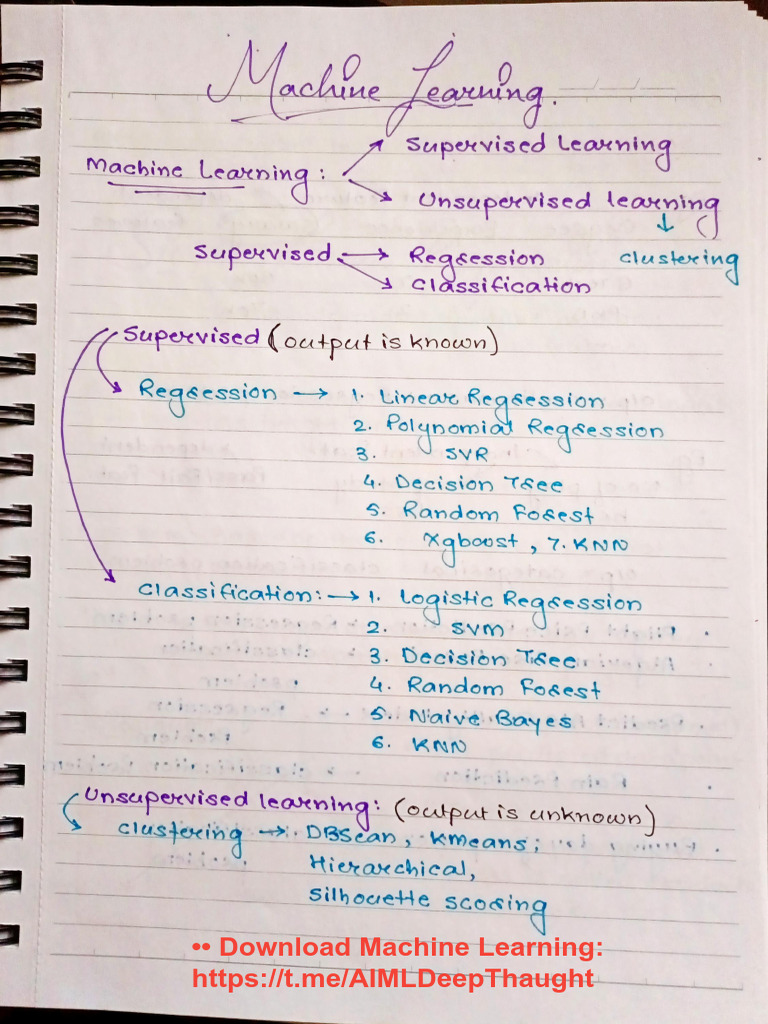 Machine Learning.
Machine Learning : → Supervised Learning
→ Unsupervised learning
↓
Supervised → Regression clustering
→ Classification
Supervised (output is known)
Regression → 1. Linear Regression
2. Polynomial Regression
3. SVR
4. Decision Tree
5. Random Forest
6. Xgboost , 7. KNN
Classification: → 1. Logistic Regression
2. SVM
3. Decision Tree
4. Random Forest
5. Naive Bayes
6. KNN
Unsupervised learning: (output is unknown)
clustering → DBScan, Kmeans;
Hierarchical,
Silhouette scoring
•• Download Machine Learning:
https://t.me/AIMLDeepThaught